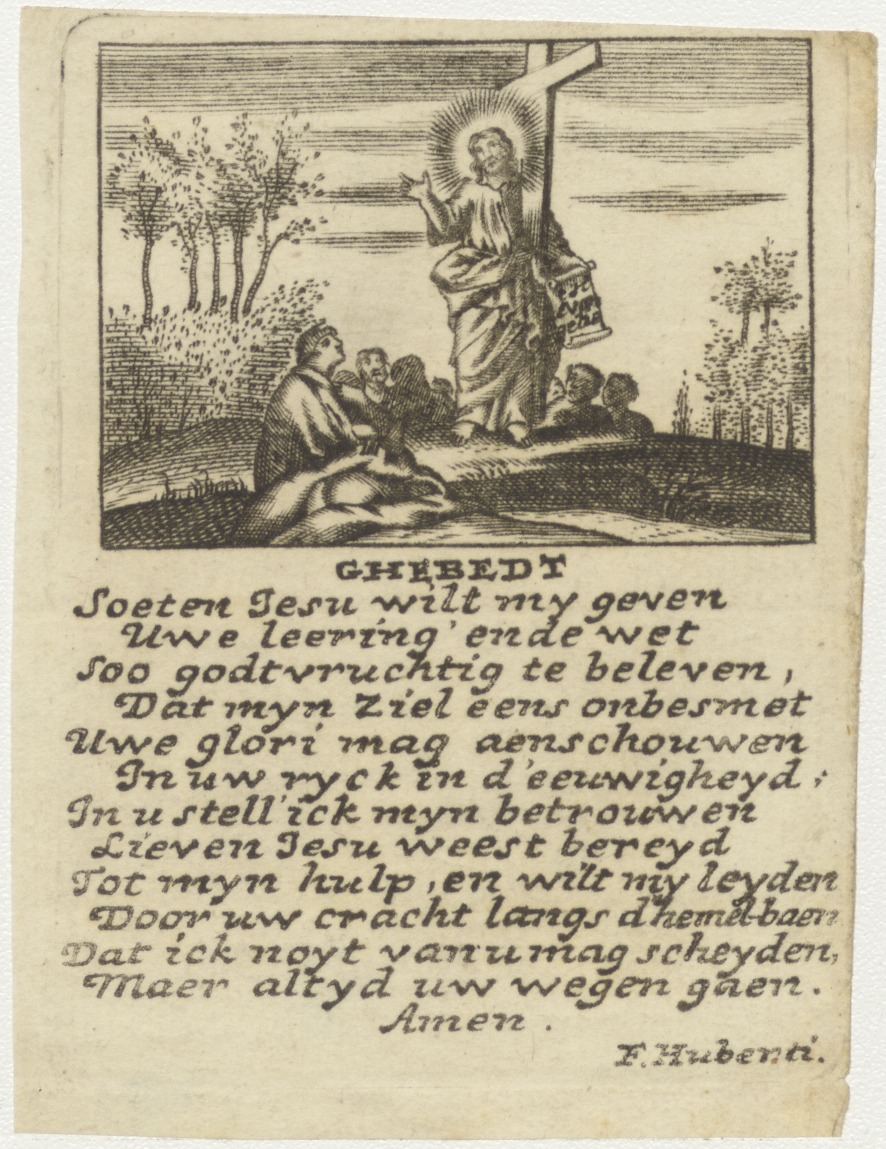 GHEBEDT
Soeten Jesu wilt my geven
Uwe leering' ende wet
Soo godtvruchtig te beleven,
Dat myn Ziel eens onbesmet
Uwe glori mag aenschouwen
In uw ryck in d'eeuwigheyd;
In u stell' ick myn betrouwen
Lieven Jesu weest bereyd
Tot myn hulp, en wilt my leyden
Door uw cracht langs d'hemel-baen
Dat ick noyt van u mag scheyden,
Maer altyd uw wegen gaen.
Amen.
F. Hubenti.